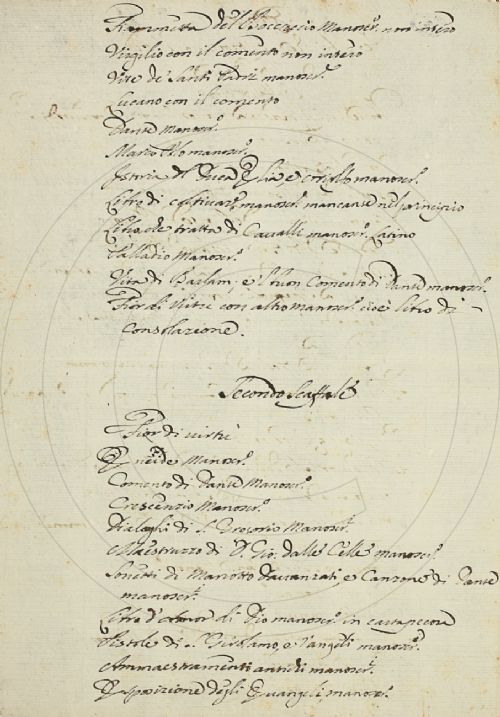 Fiammetta del Boccaccio Manoscr.º non intero
Virgilio con il comento non intero
Vite de' Santi Padri manoscr.º
Lucano con il comento
Dante Manoscr.º
Marco Polo manoscr.º
Istoria di manoscr.º
Libro di manoscr.º mancante nel principio
Libro che tratta di Cavalli manoscr.º Latino
Palladio Manoscr.º
Vita di Barlam, e l' buon Comento di Dante manoscr.º
Fior di Virtù con altro manoscr.º cioè libro di
Consolazione.
Secondo Scaffale
Fior di virtù
Eneide Manoscr.º
Comento di Dante Manoscr.º
Crescenzio Manoscr.º
Dialoghi di S. Gregorio Manoscr.º
Maestruzzo di D. Gio: dalle Celle manoscr.º
Sonetti di Mariotto Davanzati, e Canzone di Dante
manoscr.º
Libro d'Amor di Dio manoscr.º in cartapecora
Pistole di S. Girolamo, e Vangeli manoscr.º
Ammaestramenti antichi manoscr.º
Esposizione degli Evangeli manoscr.º